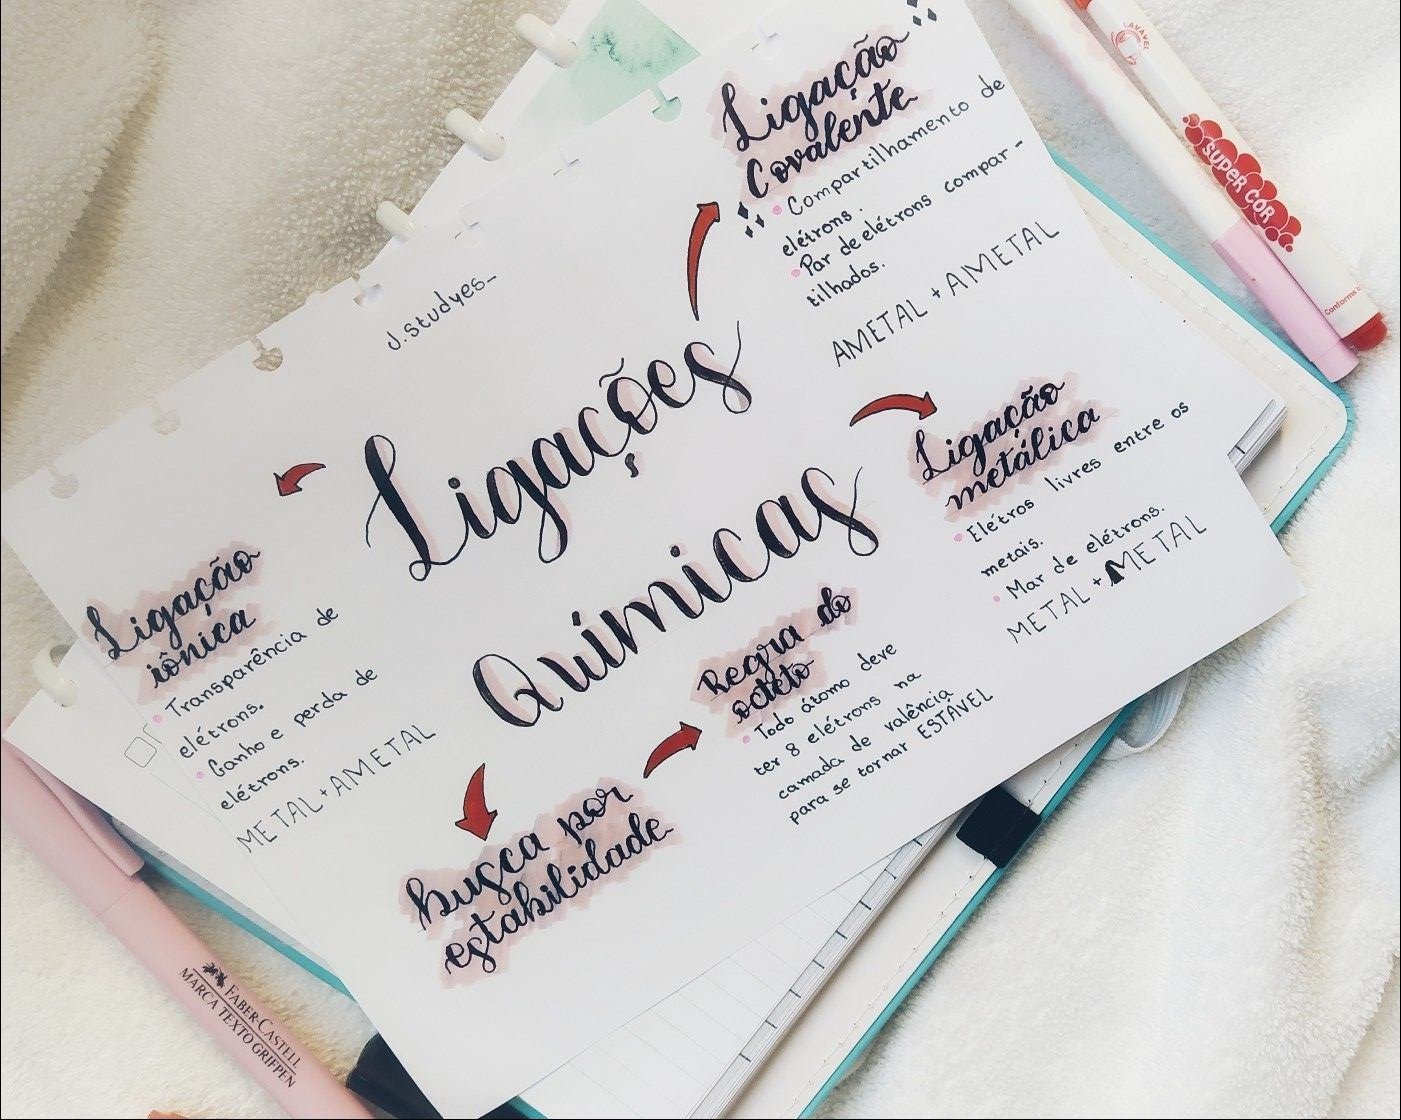 J.studyes_
Ligações
Químicas
Ligação
Covalente
Compartilhamento de
elétrons.
Par de elétrons compar-
tilhados.
AMETAL + AMETAL
Ligação
metálica
Elétros livres entre os
metais.
Mar de elétrons.
METAL + METAL
Ligação
iônica
Transparência de
elétrons.
Ganho e perda de
elétrons.
METAL + AMETAL
Regra do
octeto
Todo átomo deve
ter 8 elétrons na
camada de valência
para se tornar ESTÁVEL
busca por
estabilidade
LAVÁVEL
SUPER COR
Conforms
FABER-CASTELL
MARCA TEXTO GRIFPEN